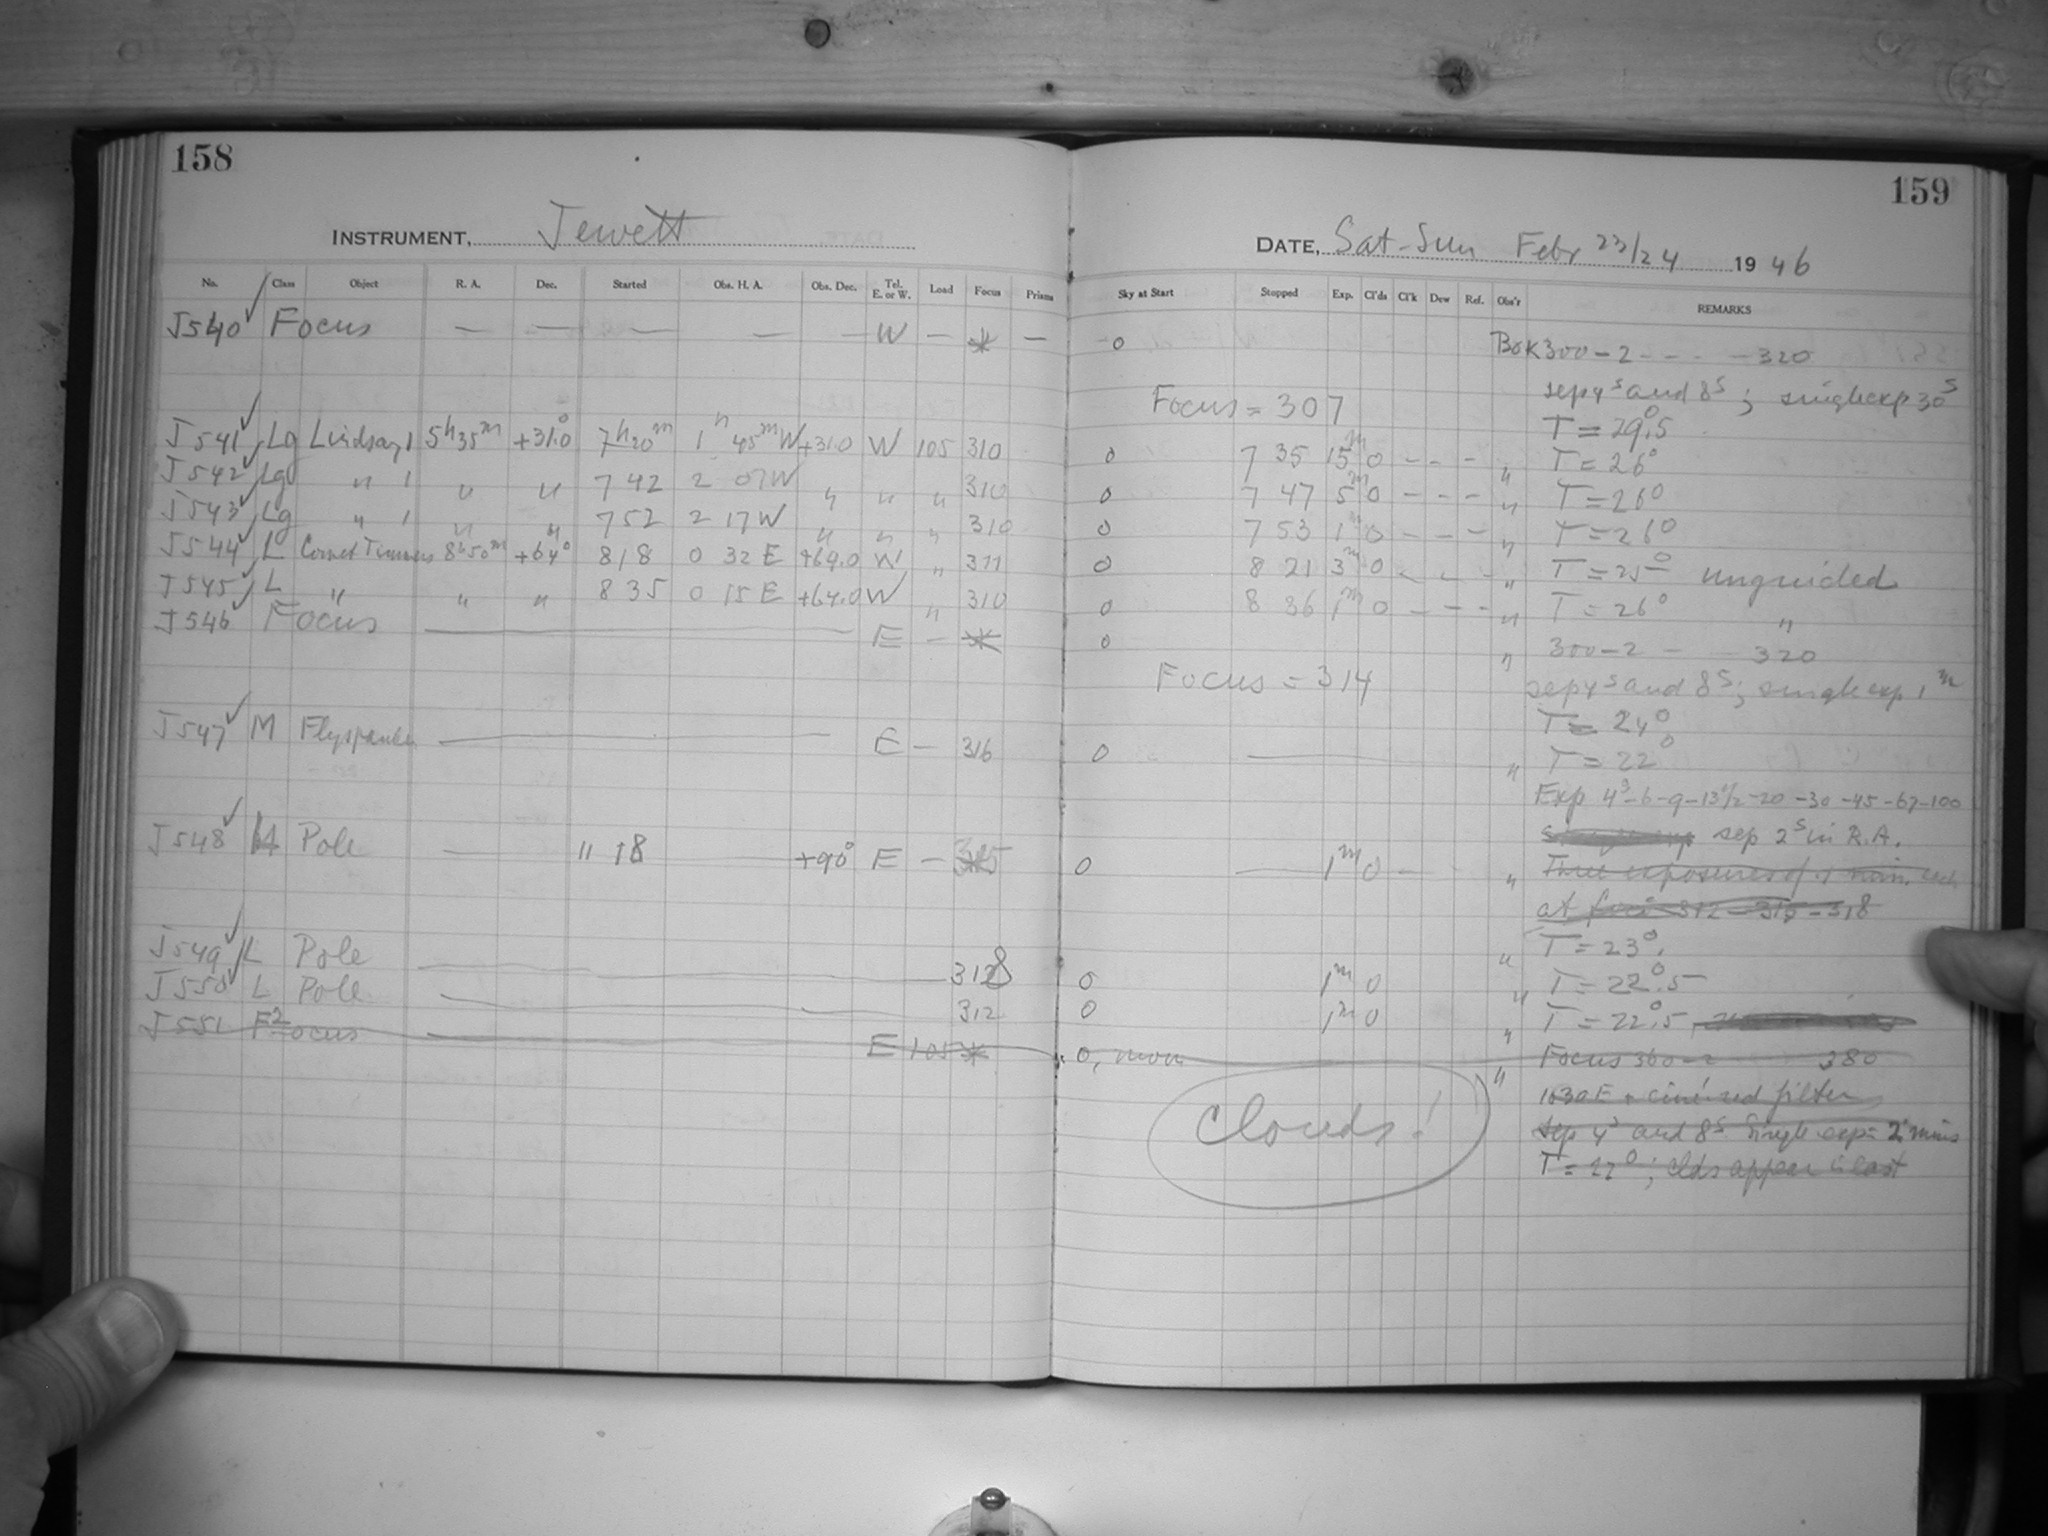 158
INSTRUMENT, Jewett
No. Class Object R. A. Dec. Started Obs. H. A. Obs. Dec. Tel. E. or W. Load Focus Prisms
J540 Focus — — — — — W — * —
J541 Lg Lindsay 1 5h35m +31.0° 7h20m 1h 45m W +31.0 W 105 310
J542 Lg " 1 " " 7 42 2 07W " " " 310
J543 Lg " 1 " " 7 52 2 17W " " " 310
J544 L Comet Timmers 8h50m +64° 8 18 0 32 E +64.0 W " 311
J545 L " " " 8 35 0 15 E +64.0 W " 310
J546 Focus — E — *
J547 M Flyspanker — E — 316
J548 Pole — 11 18 +90° E — 315
J549 L Pole — 318
J550 L Pole — 312
J551 Focus — E 105 *
159
DATE, Sat-Sun Febr 23/24 1946
Sky at Start Stopped Exp. Cl'ds Cl'k Dew Ref. Obs'r REMARKS
0 Bok 300-2 - - - -320
sep 4s and 8s; single exp 30s
Focus = 307
T = 29°.5
0 7 35 15m 0 - - - " T = 26°
0 7 47 5m 0 - - - " T = 26°
0 7 53 1m 0 - - - " T = 26°
0 8 21 3m 0 - - - " T = 25° unguided
0 8 36 1m 0 - - - " T = 26° "
0 " 300-2 - - 320
Focus = 314
sep 4s and 8s; single exp 1m
T = 24°
0 — " T = 22°
Exp 4s-6-9-13½-20-30-45-67-100
sep 2s in R.A.
0 — 1m 0 - " Three exposures of 1 min. each
at foci 312-315-318
" T = 23°.
0 1m 0 " T = 22°.5
0 1m 0 " T = 22°.5
0, moon Focus 360-2 380
" 103aE + ciné red filter
Clouds!
sep 4s and 8s Single exp = 2 mins
T = 22°; clds appear in east